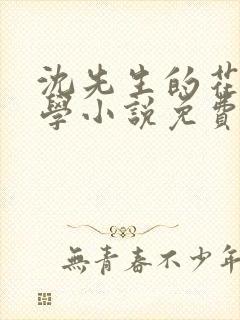 沈先生的花
學小說免費
無青春不少年